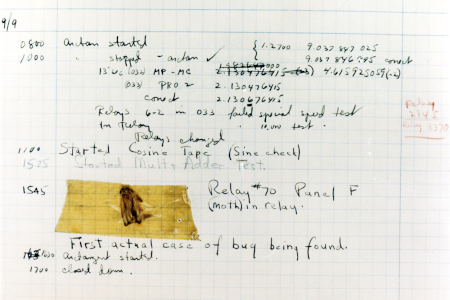 9/9
0800 Antan started { 1.2700 9.037 847 025
1000 " stopped - antan ✓ 9.037 846 995 correct
13"uc (032) MP - MC 2.130476415 (-3) 4.615925059(-2)
(033) PRO 2 2.130476415
correct 2.130676415
Relays 6-2 in 033 failed special speed test
In Relay " 10.000 test.
Relays changed
Relay
1100 Started Cosine Tape (Sine check)
1525 Started Mult + Adder Test.
1545 Relay #70 Panel F
(moth) in relay.
First actual case of bug being found.
1630 antangent started.
1700 closed down.